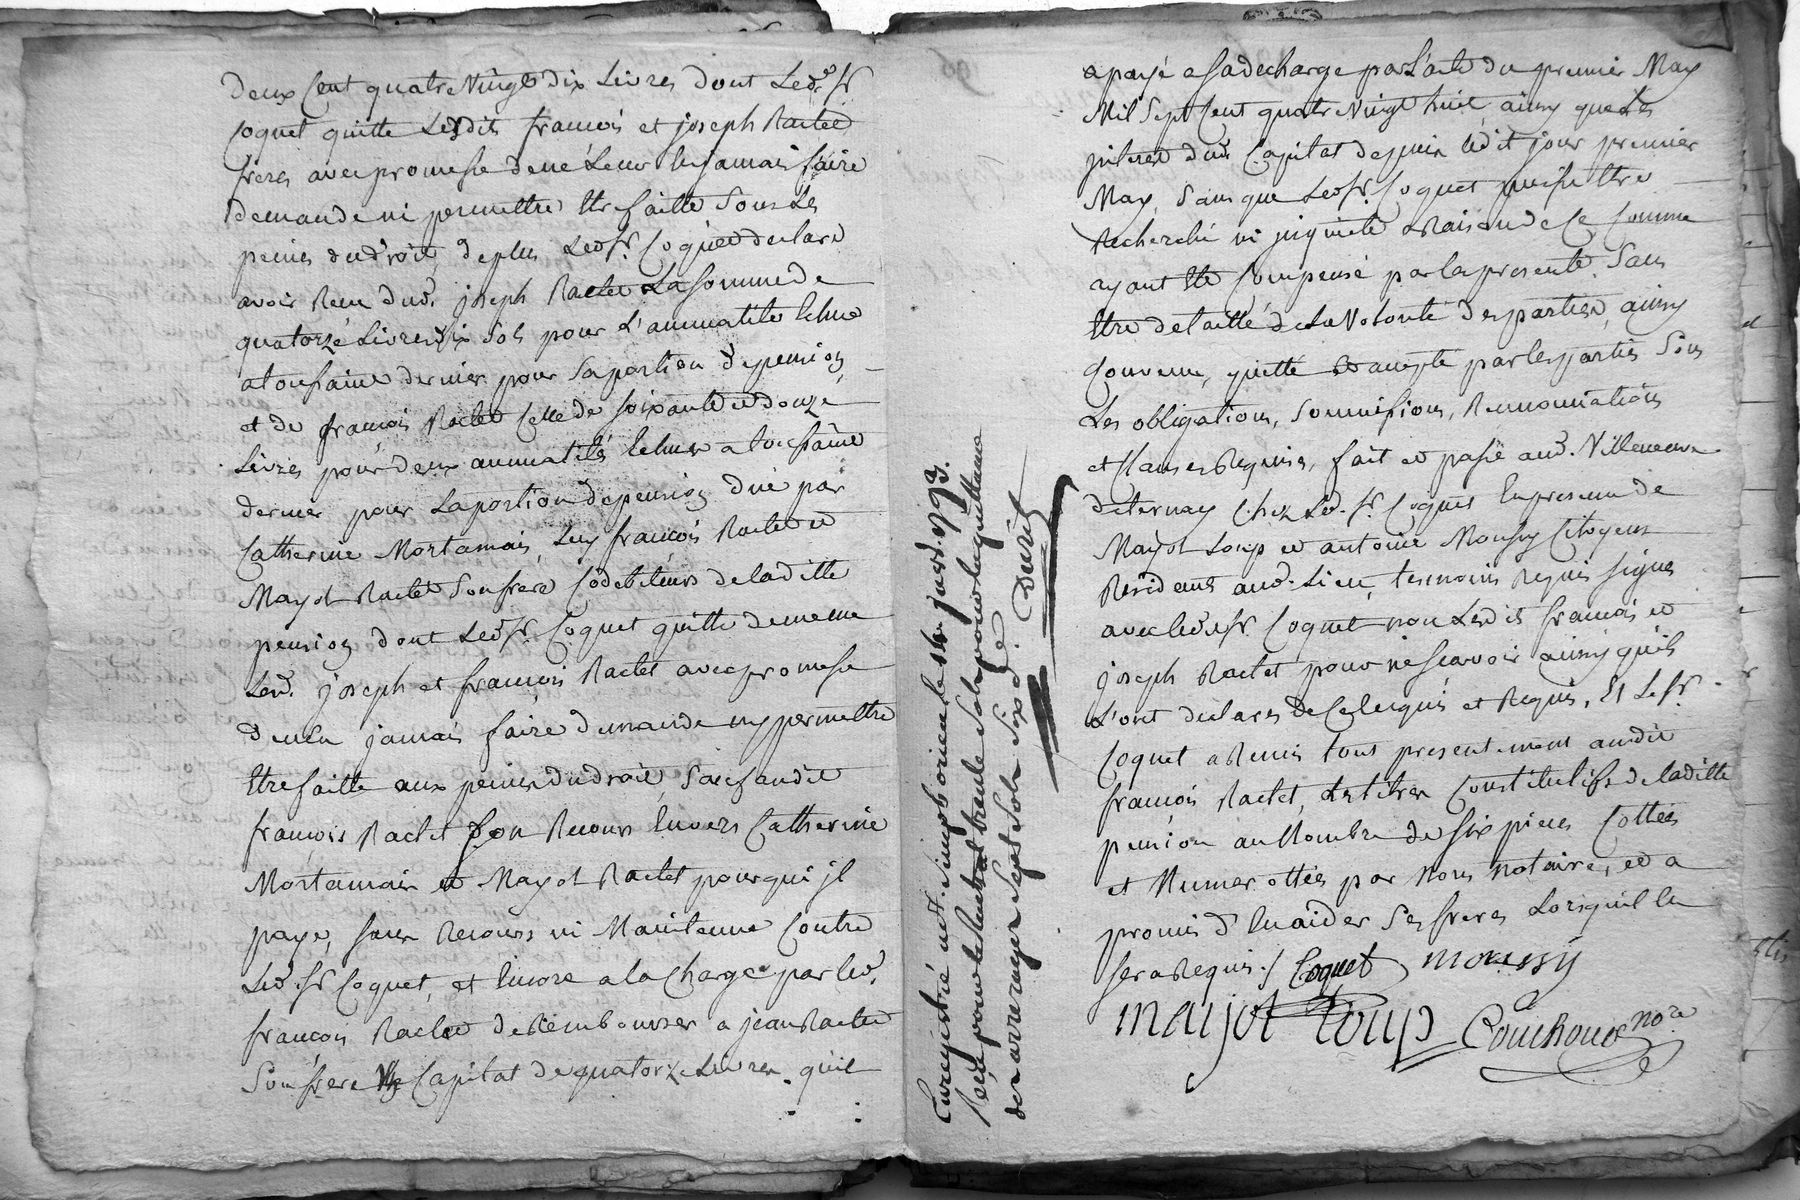 deux Cent quatre Vingt dix Livres dont Ledt. Sr
Coquet quitte Lesdits francois et joseph Ractet
freres avec promesse de ne Leur en jamais faire
demande ni permettre Etre faitte Sous Les
peines du droit, de plus Ledt Sr. Coquet declare
avoir Recu dud. joseph Ractet La Somme de
quatorze Livres dix Sols pour L'annuatité Echue
a toussaint dernier pour Sa portion de pension
et de francois Ractet Celle de Soixante et douze
Livres pour deux annuatités Echues a toussaint
dernier pour La portion de pension due par
Catherine Mortamais, Luy francois Ractet et
Mayol Ractet Son frere Codebiteurs de laditte
pension dont Ledt Sr. Coquet quitte de meme
Lesd. joseph et francois Ractet avec promesse
d'en jamais faire demande ny permettre
Etre faitte aux peines du droit, Sauf audit
francois Ractet Son Recours Envers Catherine
Mortamais et Mayol Ractet pour qui jl
paye, Sans Recours ni Maintenue Contre
Led. Sr Coquet, et Encore a la Charge par led.
francois Ractet de Rembourser a jean Ractet
Son frere Capital de quatorze Livres qu'il
Enregistré a St. Simphorien le juin 1793.
Reçu pour le trente Sols pour la quittance
des arrerages Sept Sols Six d.
Duret
a payé a Sa decharge par L'acte du premier May
Mil Sept Cent quatre Vingt huit, ainsy que Les
jnterets dud Capital depuis Ledit jour premier
May, Sans que Ledt Sr. Coquet puisse Etre
Recherché ni jnquieté a Raison de Ce Comme
ayant Eté Compensé par la presente. Sans
Etre detaillé de La Volonté des parties, ainsy
Convenu, quitté et accepté par les parties Sous
Les obligations, Soumissions, Renonciations
et Clauses Requises, fait et passé aud. Villeneuve
de ternay Chez Led. Sr. Coquet En presence de
Mayol Loup et antoine Moussy Citoyens
Residents aud. Lieu, temoins Requis signés
avec led Sr Coquet non Lesdit francois et
joseph Ractet pour ne Scavoir ainsy qu'ils
L'ont declarés de Ce Enquis et Requis, Et Le Sr.
Coquet a Remis tout presentement audit
francois Ractet, Les titres Constitutifs de laditte
pension au Nombre de Six pieces Cottées
et Numerottées par Nous Notaire, et a
promis d'En aider Ses freres Lorsqu'il En
Sera Requis ./. Coquet moussy
maijol loup Couchoud nore